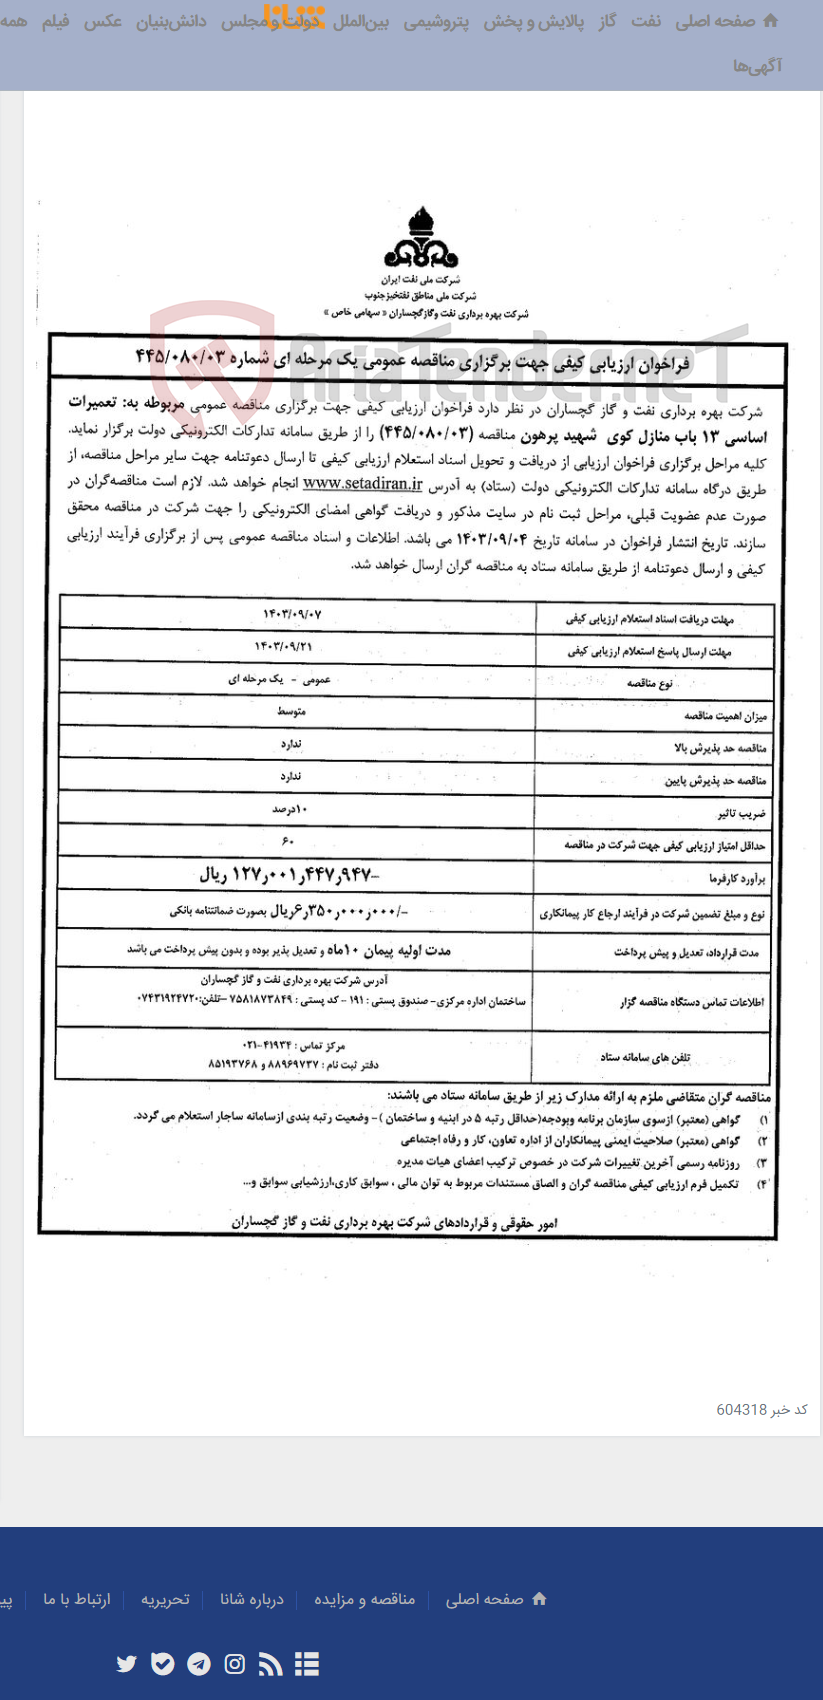 صفحه اصلی نفت گاز پالایش و پخش پتروشیمی بین‌الملل دولت و مجلس دانش‌بنیان عکس فیلم همه
آگهی‌ها
شرکت ملی نفت ایران
شرکت ملی مناطق نفتخیزجنوب
شرکت بهره برداری نفت وگازگچساران « سهامی خاص »
AriaTender.neT
فراخوان ارزیابی کیفی جهت برگزاری مناقصه عمومی یک مرحله ای شماره ۴۴۵/۰۸۰/۰۳
شرکت بهره برداری نفت و گاز گچساران در نظر دارد فراخوان ارزیابی کیفی جهت برگزاری مناقصه عمومی مربوطه به: تعمیرات
اساسی ۱۳ باب منازل کوی شهید پرهون مناقصه (۴۴۵/۰۸۰/۰۳) را از طریق سامانه تدارکات الکترونیکی دولت برگزار نماید.
کلیه مراحل برگزاری فراخوان ارزیابی از دریافت و تحویل اسناد استعلام ارزیابی کیفی تا ارسال دعوتنامه جهت سایر مراحل مناقصه، از
طریق درگاه سامانه تدارکات الکترونیکی دولت (ستاد) به آدرس www.setadiran.ir انجام خواهد شد. لازم است مناقصه‌گران در
صورت عدم عضویت قبلی، مراحل ثبت نام در سایت مذکور و دریافت گواهی امضای الکترونیکی را جهت شرکت در مناقصه محقق
سازند. تاریخ انتشار فراخوان در سامانه تاریخ ۱۴۰۳/۰۹/۰۴ می باشد. اطلاعات و اسناد مناقصه عمومی پس از برگزاری فرآیند ارزیابی
کیفی و ارسال دعوتنامه از طریق سامانه ستاد به مناقصه گران ارسال خواهد شد.
مهلت دریافت اسناد استعلام ارزیابی کیفی ۱۴۰۳/۰۹/۰۷
مهلت ارسال پاسخ استعلام ارزیابی کیفی ۱۴۰۳/۰۹/۲۱
نوع مناقصه عمومی - یک مرحله ای
میزان اهمیت مناقصه متوسط
مناقصه حد پذیرش بالا ندارد
مناقصه حد پذیرش پایین ندارد
ضریب تاثیر ۱۰درصد
حداقل امتیاز ارزیابی کیفی جهت شرکت در مناقصه ۶۰
برآورد کارفرما -۱۲۷٫۰۰۱٫۴۴۷٫۹۴۷ ریال
نوع و مبلغ تضمین شرکت در فرآیند ارجاع کار پیمانکاری -/۶٫۳۵۰٫۰۰۰٫۰۰۰ریال بصورت ضمانتنامه بانکی
مدت قرارداد، تعدیل و پیش پرداخت مدت اولیه پیمان ۱۰ماه و تعدیل پذیر بوده و بدون پیش پرداخت می باشد
آدرس شرکت بهره برداری نفت و گاز گچساران
اطلاعات تماس دستگاه مناقصه گزار ساختمان اداره مرکزی- صندوق پستی : ۱۹۱ - کد پستی : ۷۵۸۱۸۷۳۸۴۹ –تلفن:۰۷۴۳۱۹۲۴۷۲۰
تلفن های سامانه ستاد مرکز تماس : ۴۱۹۳۴-۰۲۱
دفتر ثبت نام : ۸۸۹۶۹۷۳۷ و ۸۵۱۹۳۷۶۸
مناقصه گران متقاضی ملزم به ارائه مدارک زیر از طریق سامانه ستاد می باشند:
۱) گواهی (معتبر) ازسوی سازمان برنامه وبودجه(حداقل رتبه ۵ در ابنیه و ساختمان ) - وضعیت رتبه بندی ازسامانه ساجار استعلام می گردد.
۲) گواهی (معتبر) صلاحیت ایمنی پیمانکاران از اداره تعاون، کار و رفاه اجتماعی
۳) روزنامه رسمی آخرین تغییرات شرکت در خصوص ترکیب اعضای هیات مدیره
۴) تکمیل فرم ارزیابی کیفی مناقصه گران و الصاق مستندات مربوط به توان مالی ، سوابق کاری،ارزشیابی سوابق و...
امور حقوقی و قراردادهای شرکت بهره برداری نفت و گاز گچساران
کد خبر 604318
صفحه اصلی مناقصه و مزایده درباره شانا تحریریه ارتباط با ما